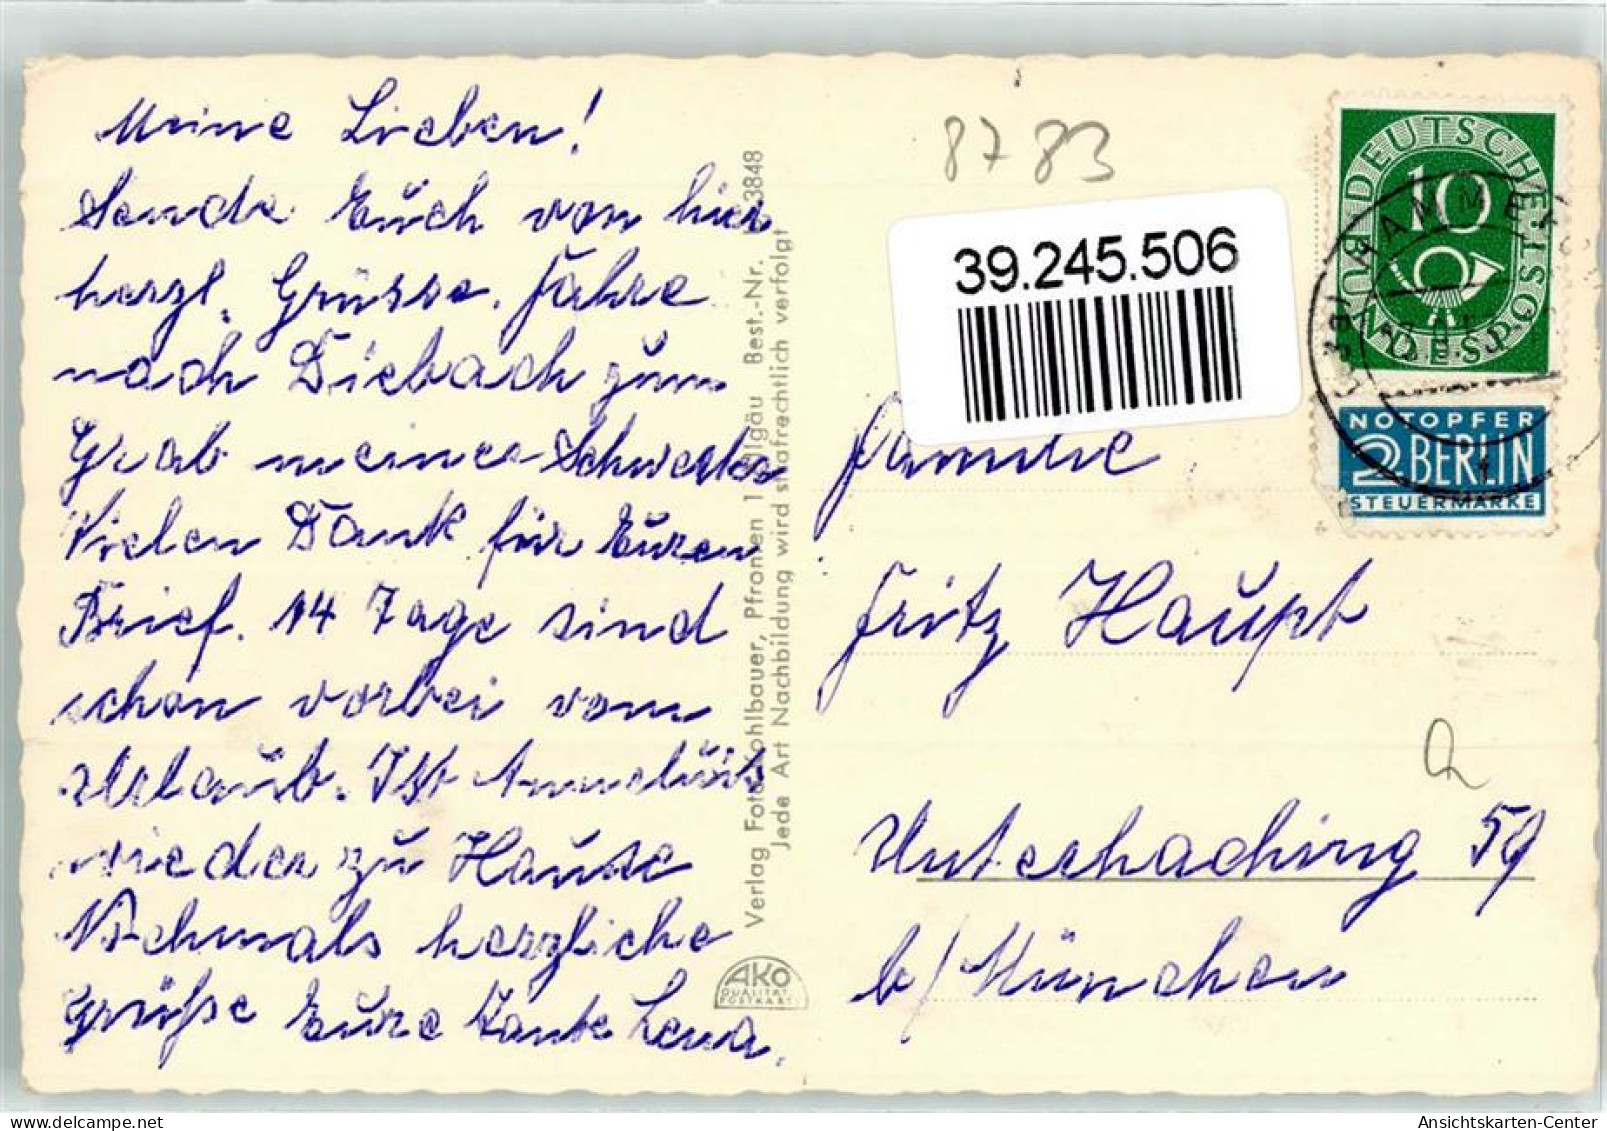 Meine Lieben!
Sende Euch von hier
herzl. Grüsse. Fahre
nach Diebach zum
Grab meiner Schwester
Vielen Dank für Euren
Brief. 14 Tage sind
schon vorbei vom
Urlaub. Ist Anneluis
wieder zu Hause
Nochmals herzliche
Grüße Eure Tante Lena.
Verlag Foto Kohlbauer, Pfronten 1 Allgäu Best.-Nr. 3848
Jede Art Nachbildung wird strafrechtlich verfolgt
AKO
QUALITÄT
POSTKARTE
8783
39.245.506
DEUTSCHE BUNDESPOST
10
NOTOPFER
2 BERLIN
STEUERMARKE
Familie
Fritz Haupt
Unterhaching 59
b/München
Ansichtskarten-Center